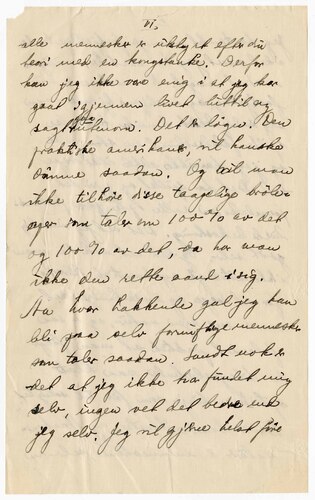 VI.
alle mennesker er utklyt efter din
teori med en kongstanke. Derfor
kan jeg ikke være enig i at jeg har
gaat igjennem livet tuttil og
sagt Det er løgn. Den
praktiske amerikaner, vil kanske
dømme saadan. Og vil man
ikke tilhøre disse taagelige brøle-
aper som taler om 100% av det
og 100% av det, da har man
ikke den rette aand i sig.
Aa hvor hakkende gal jeg kan
bli paa selv fornuftige mennesker
som taler saadan. Sandt nok er
det at jeg ikke har fundet mig
selv, ingen vet det bedre end
jeg selv. Jeg vil gjerne helst føre